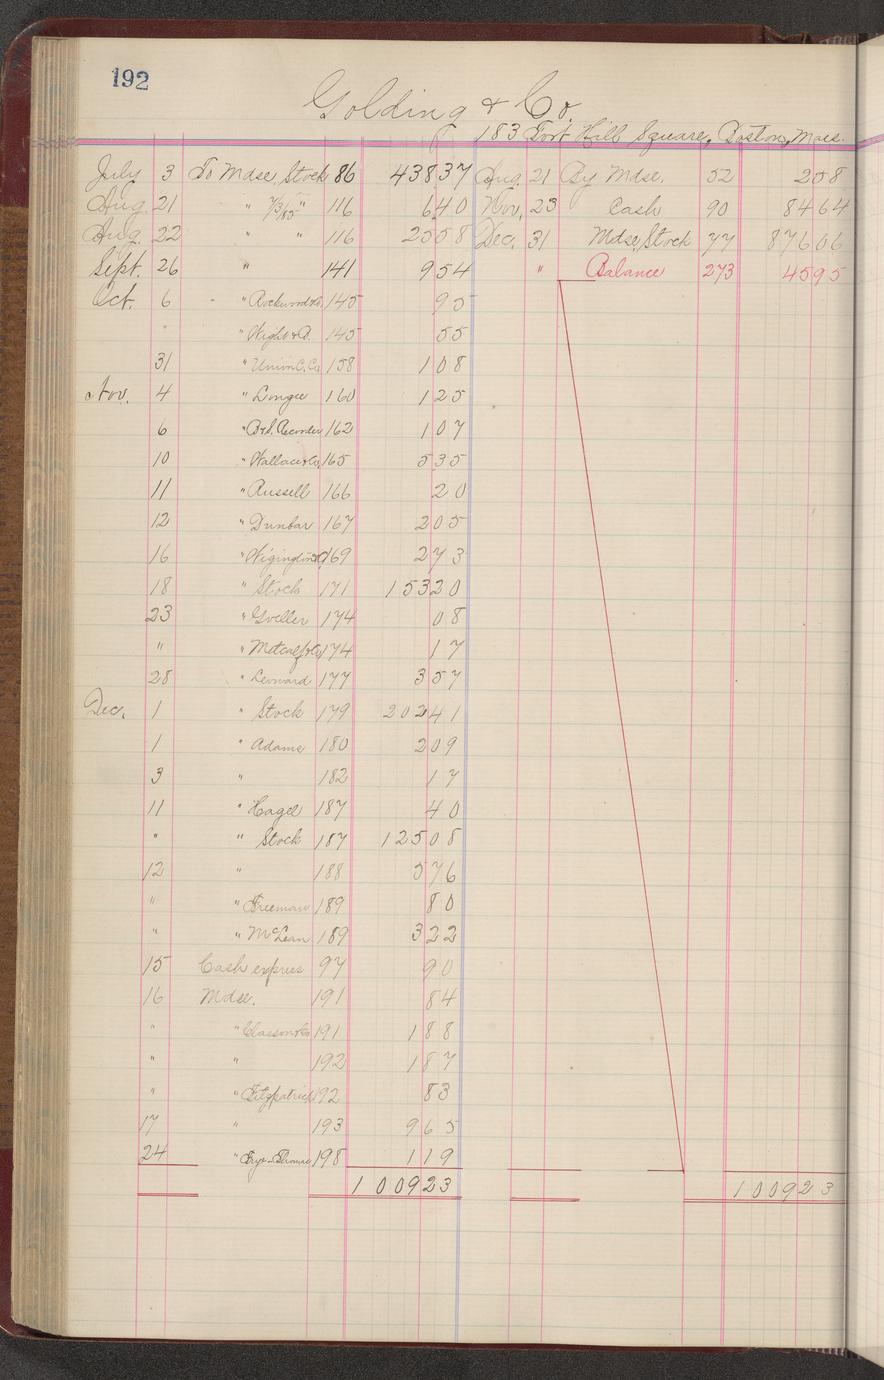 192
Golding & Co.
183 Fort Hill Square, Boston, Mass.
July 3 To Mdse. Stock 86 438 37 Aug. 21 By Mdse. 52 2 58
Aug. 21 " 7/3/85 " 116 6 40 Nov. 23 Cash 90 84 64
Aug. 22 " " 116 25 58 Dec. 31 Mdse. Stock 77 876 06
Sept. 26 " 141 9 54 " Balance 273 45 95
Oct. 6 " Rockwood & Co. 145 95
" " Wight & D. 145 55
31 " Union C. Co. 158 1 08
Nov. 4 " Longee 160 1 25
6 " B. & S. Recorder 162 1 07
10 " Wallace & Co. 165 5 35
11 " Russell 166 20
12 " Dunbar 167 2 05
16 " 169 2 73
18 " Stock 171 153 20
23 " 174 08
" " Metcalf & Co. 174 17
28 " Leonard 177 3 57
Dec. 1 " Stock 179 202 41
1 " Adams 180 2 09
3 " 182 17
11 " Hagel 187 40
" " Stock 187 125 08
12 " 188 5 76
" " Freeman 189 80
" " McLean 189 3 22
15 Cash express 97 90
16 Mdse. 191 84
" " 191 1 88
" " 192 1 87
" " Fitzpatrick 192 83
17 " 193 9 65
24 " 198 1 19
1 009 23 1 009 23